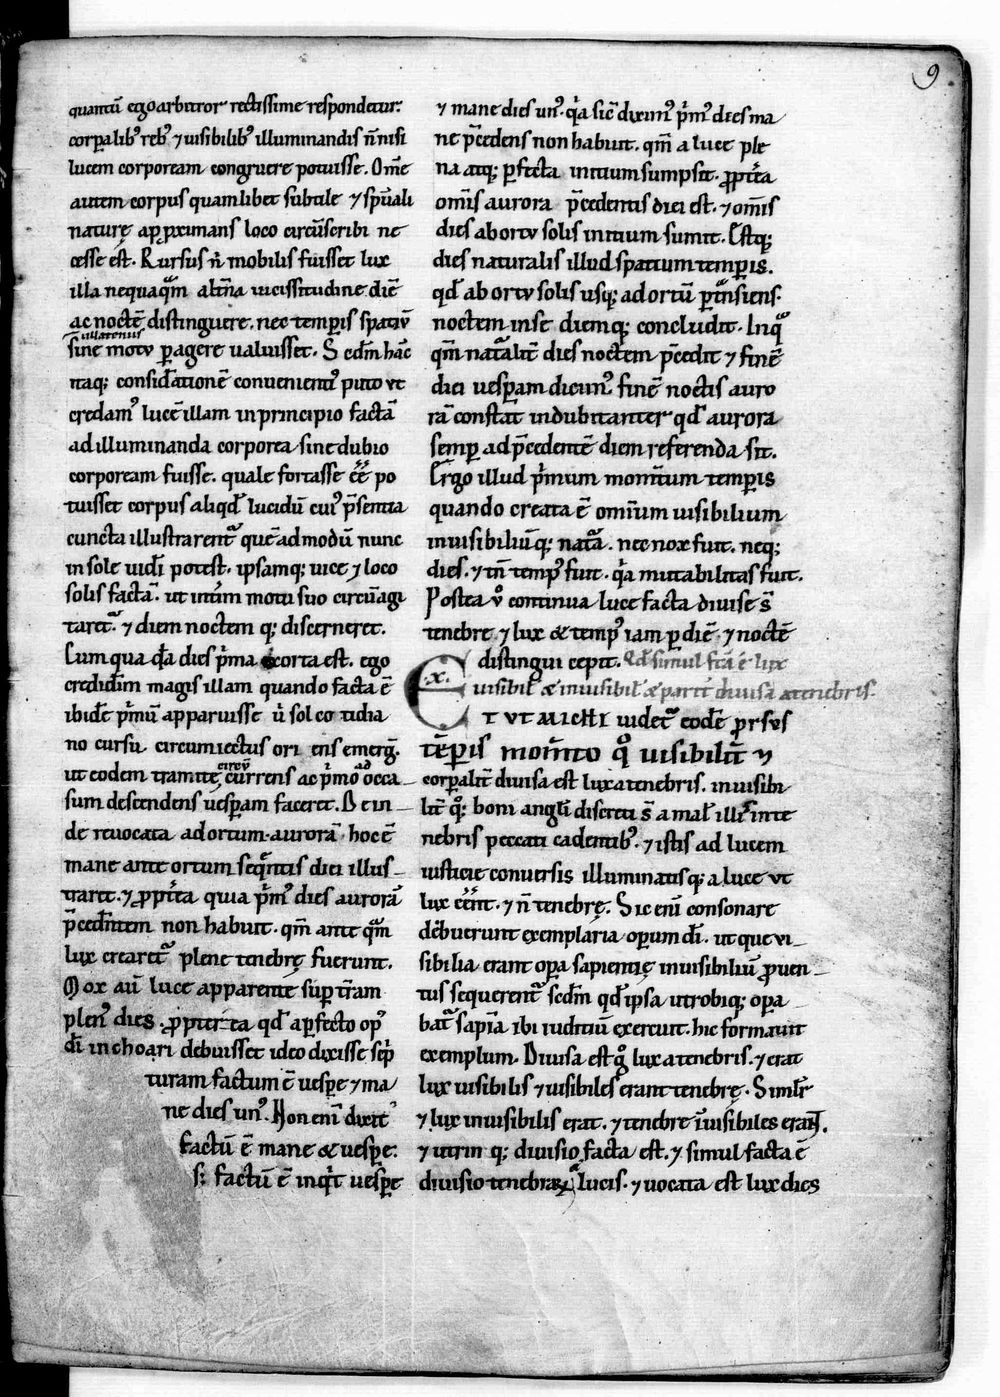 9
quantũ ego arbitror rectissime respondetur.
corp̃alib' reb' ⁊ uisibilib' illuminandis ñ nisi
lucem corpoream congruere potuisse. Om̃e
autem corpus quamlibet subtile ⁊ sp̃uali
naturę app̃ximans loco circũscribi ne
cesse est. Rursus ñ mobilis fuisset lux
illa nequaq̃m alt̃na uicissitudine diẽ
ac noctẽ distinguere. nec temp̃is spatiũ
ullatenus
sine motu p̃agere ualuisset. Secd̃m hãc
itaq; considerationẽ conuenienti' puto ut
credam' lucẽ illam in principio factã
ad illuminanda corporea sine dubio
corpoream fuisse. quale fortasse eẽ po
tuisset corpus aliqd̃ lucidũ cui' p̃sentia
cuncta illustrarent̃ quẽadmodũ nunc
in sole uidi potest. ipsamq; uice ⁊ loco
solis factã. ut int̃im motu suo circũagi
taret̃. ⁊ diem noctem q; discerneret.
Cum qua q̃a dies p̃ma exorta est. ego
credid̃im magis illam quando facta ẽ
ibidẽ p̃mũ apparuisse ũ sol cotidia
no cursu circumuectus oriens emerg̃.
circũ
ut eodem tramite currens ac p̃mo ad occa
sum descendens uesp̃am faceret. Dein
de reuocata ad ortum aurorã hoc ẽ
mane ante ortum seq̃ntis diei illus
traret. ⁊ p̃pt̃ea quia p̃m' dies aurorã
p̃cedentem non habuit. qm̃ ante q̃m
lux crearet̃ plene tenebrę fuerunt.
Mox aũ luce apparente sup̃ t̃ram
plen' dies. propterea qd̃ a p̃fecto op'
dĩ inchoari debuisset ideo dixisse sc̃ip
turam factum ẽ uesp̃e ⁊ ma
ne dies un'. Non enĩ dixit
factũ ẽ mane & uesp̃e:
s; factũ ẽ inq̃t uesp̃e
⁊ mane dies un'. q̃a sic̃ dixim' p̃m' dies ma
ne p̃cedens non habuit. qm̃ a luce ple
na atq; p̃fecta initium sumpsit. p̃pt̃ea
om̃is aurora p̃cedentis diei est. ⁊ om̃is
dies ab ortu solis initium sumit. Estq;
dies naturalis illud spatium temp̃is.
qd̃ ab ortu solis usq; ad ortũ p̃t̃nsiens
noctem in se diemq; concludit. Inq̃
q̃m nat̃alit̃ dies noctem p̃cedit ⁊ finẽ
diei uesp̃am dicim' finẽ noctis auro
rã constat indubitanter qd̃ aurora
semp̃ ad p̃cedentẽ diem referenda sit.
Ergo illud p̃mum mom̃tum temp̃is
quando creata ẽ omnium uisibilium
inuisibiliũq; nat̃a. nec nox fuit. neq;
dies. ⁊ tñ temp' fuit. q̃a mutabilitas fuit.
Postea ṽ continua luce facta diuise s̃
tenebre ⁊ lux & temp' iam p̃ diẽ ⁊ noctẽ
distingui cepit. Qd̃ simul fc̃a ẽ lux
x. uisibil' & inuisibil' & parit̃ diuisa a tenebris.
ET UT MICHI uidet̃ eodẽ prsus
tẽp̃is mom̃to q̊ uisibilit̃ ⁊
corp̃alit̃ diuisa est lux a tenebris. inuisibi
lit̃ q̊; boni angl̃i discreti s̃ a mal' illis in te
nebris peccati cadentib'. ⁊ istis ad lucem
iusticie conuersis illuminatisq; a luce ut
lux eẽnt. ⁊ ñ tenebrę. Sic enĩ consonare
debuerunt exemplaria operum dĩ. ut que ui
sibilia erant op̃a sapientię inuisibiliũ prouen
tus sequerent̃ secd̃m qd̃ ipsa utrobiq; op̃a
bat̃ sap̃ia ibi iuditiũ exercuit. hic formauit
exemplum. Diuisa est g̊ lux a tenebris. ⁊ erat
lux uisibilis ⁊ uisibiles erant tenebrę. Simil̃r
⁊ lux inuisibilis erat. ⁊ tenebre inuisibiles erant.
⁊ utrinq; diuisio facta est. ⁊ simul facta ẽ
diuisio tenebraꝝ & lucis. ⁊ uocata est lux dies